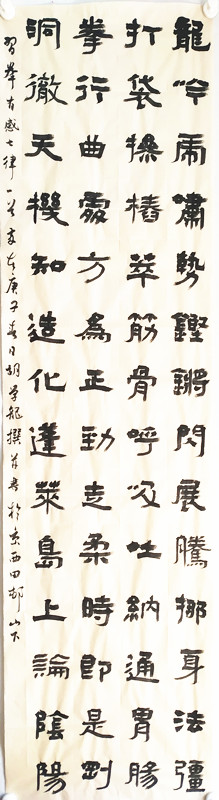 龍吟虎嘯勢鏗鏘閃展騰挪身法彊
打袋操樁萃筋骨呼吸吐納通胃腸
拳行曲處方為正勁走柔時即是剛
洞徹天機知造化蓬萊島上論陰陽
習拳有感七律一首歲在庚子春日胡學龍撰并書於京西田邨山下